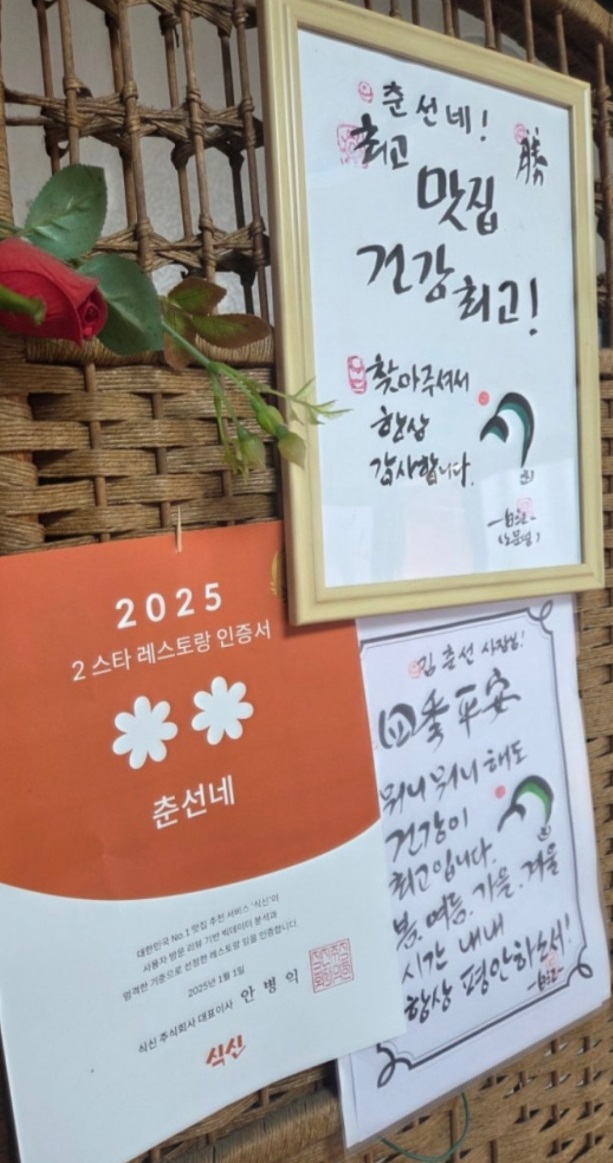 춘선네!
최고
勝
맛집
건강 최고!
찾아주셔서
항상
감사합니다.
2025
2 스타 레스토랑 인증서
춘선네
대한민국 No.1 맛집 추천 서비스 '식신'이
사용자 방문 리뷰 기반 빅데이터 분석과
엄격한 기준으로 선정한 레스토랑 임을 인증합니다.
2025년 1월 1일
식신 주식회사 대표이사 안 병 익
식신
김춘선 사장님!
四季平安
뭐니 뭐니 해도
건강이
최고입니다.
봄. 여름. 가을. 겨울
시간 내내
항상 평안하소서!